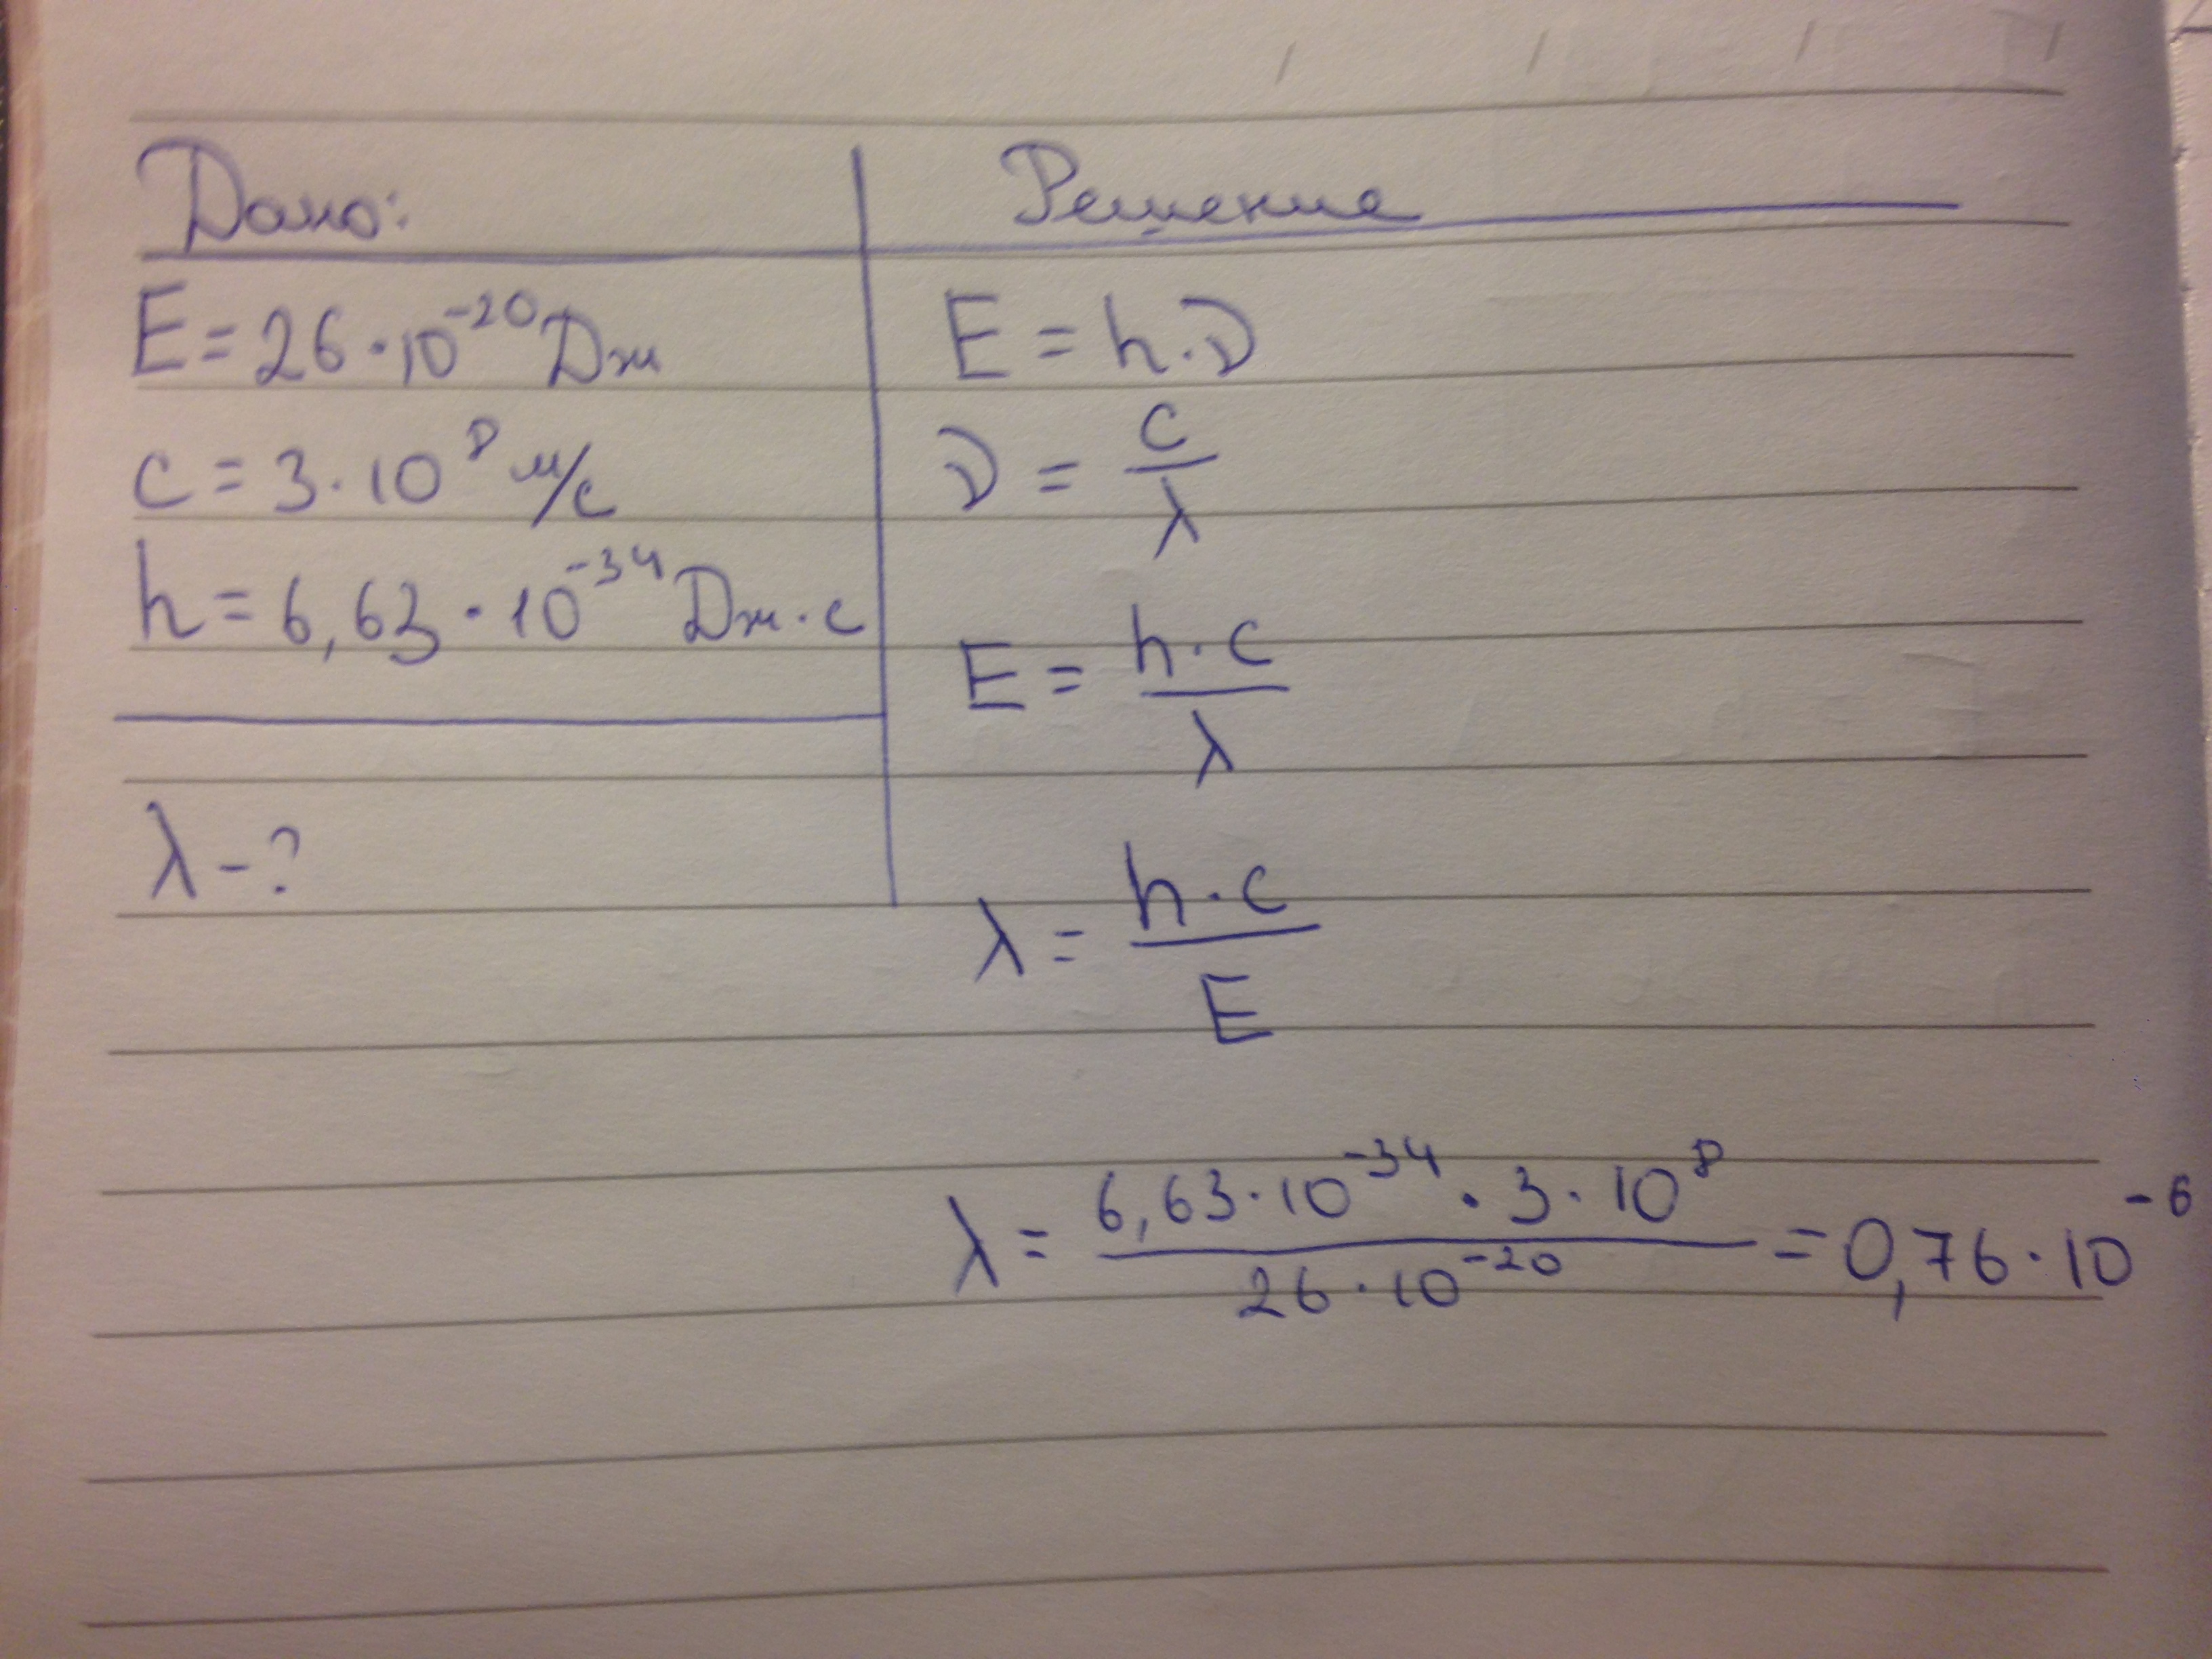 Дано:
E = 26·10⁻²⁰ Дж
c = 3·10⁸ м/с
h = 6,63·10⁻³⁴ Дж·с
λ - ?
Решение
E = h·ν
ν = c/λ
E = h·c/λ
λ = h·c/E
λ = 6,63·10⁻³⁴·3·10⁸/26·10⁻²⁰ = 0,76·10⁻⁶